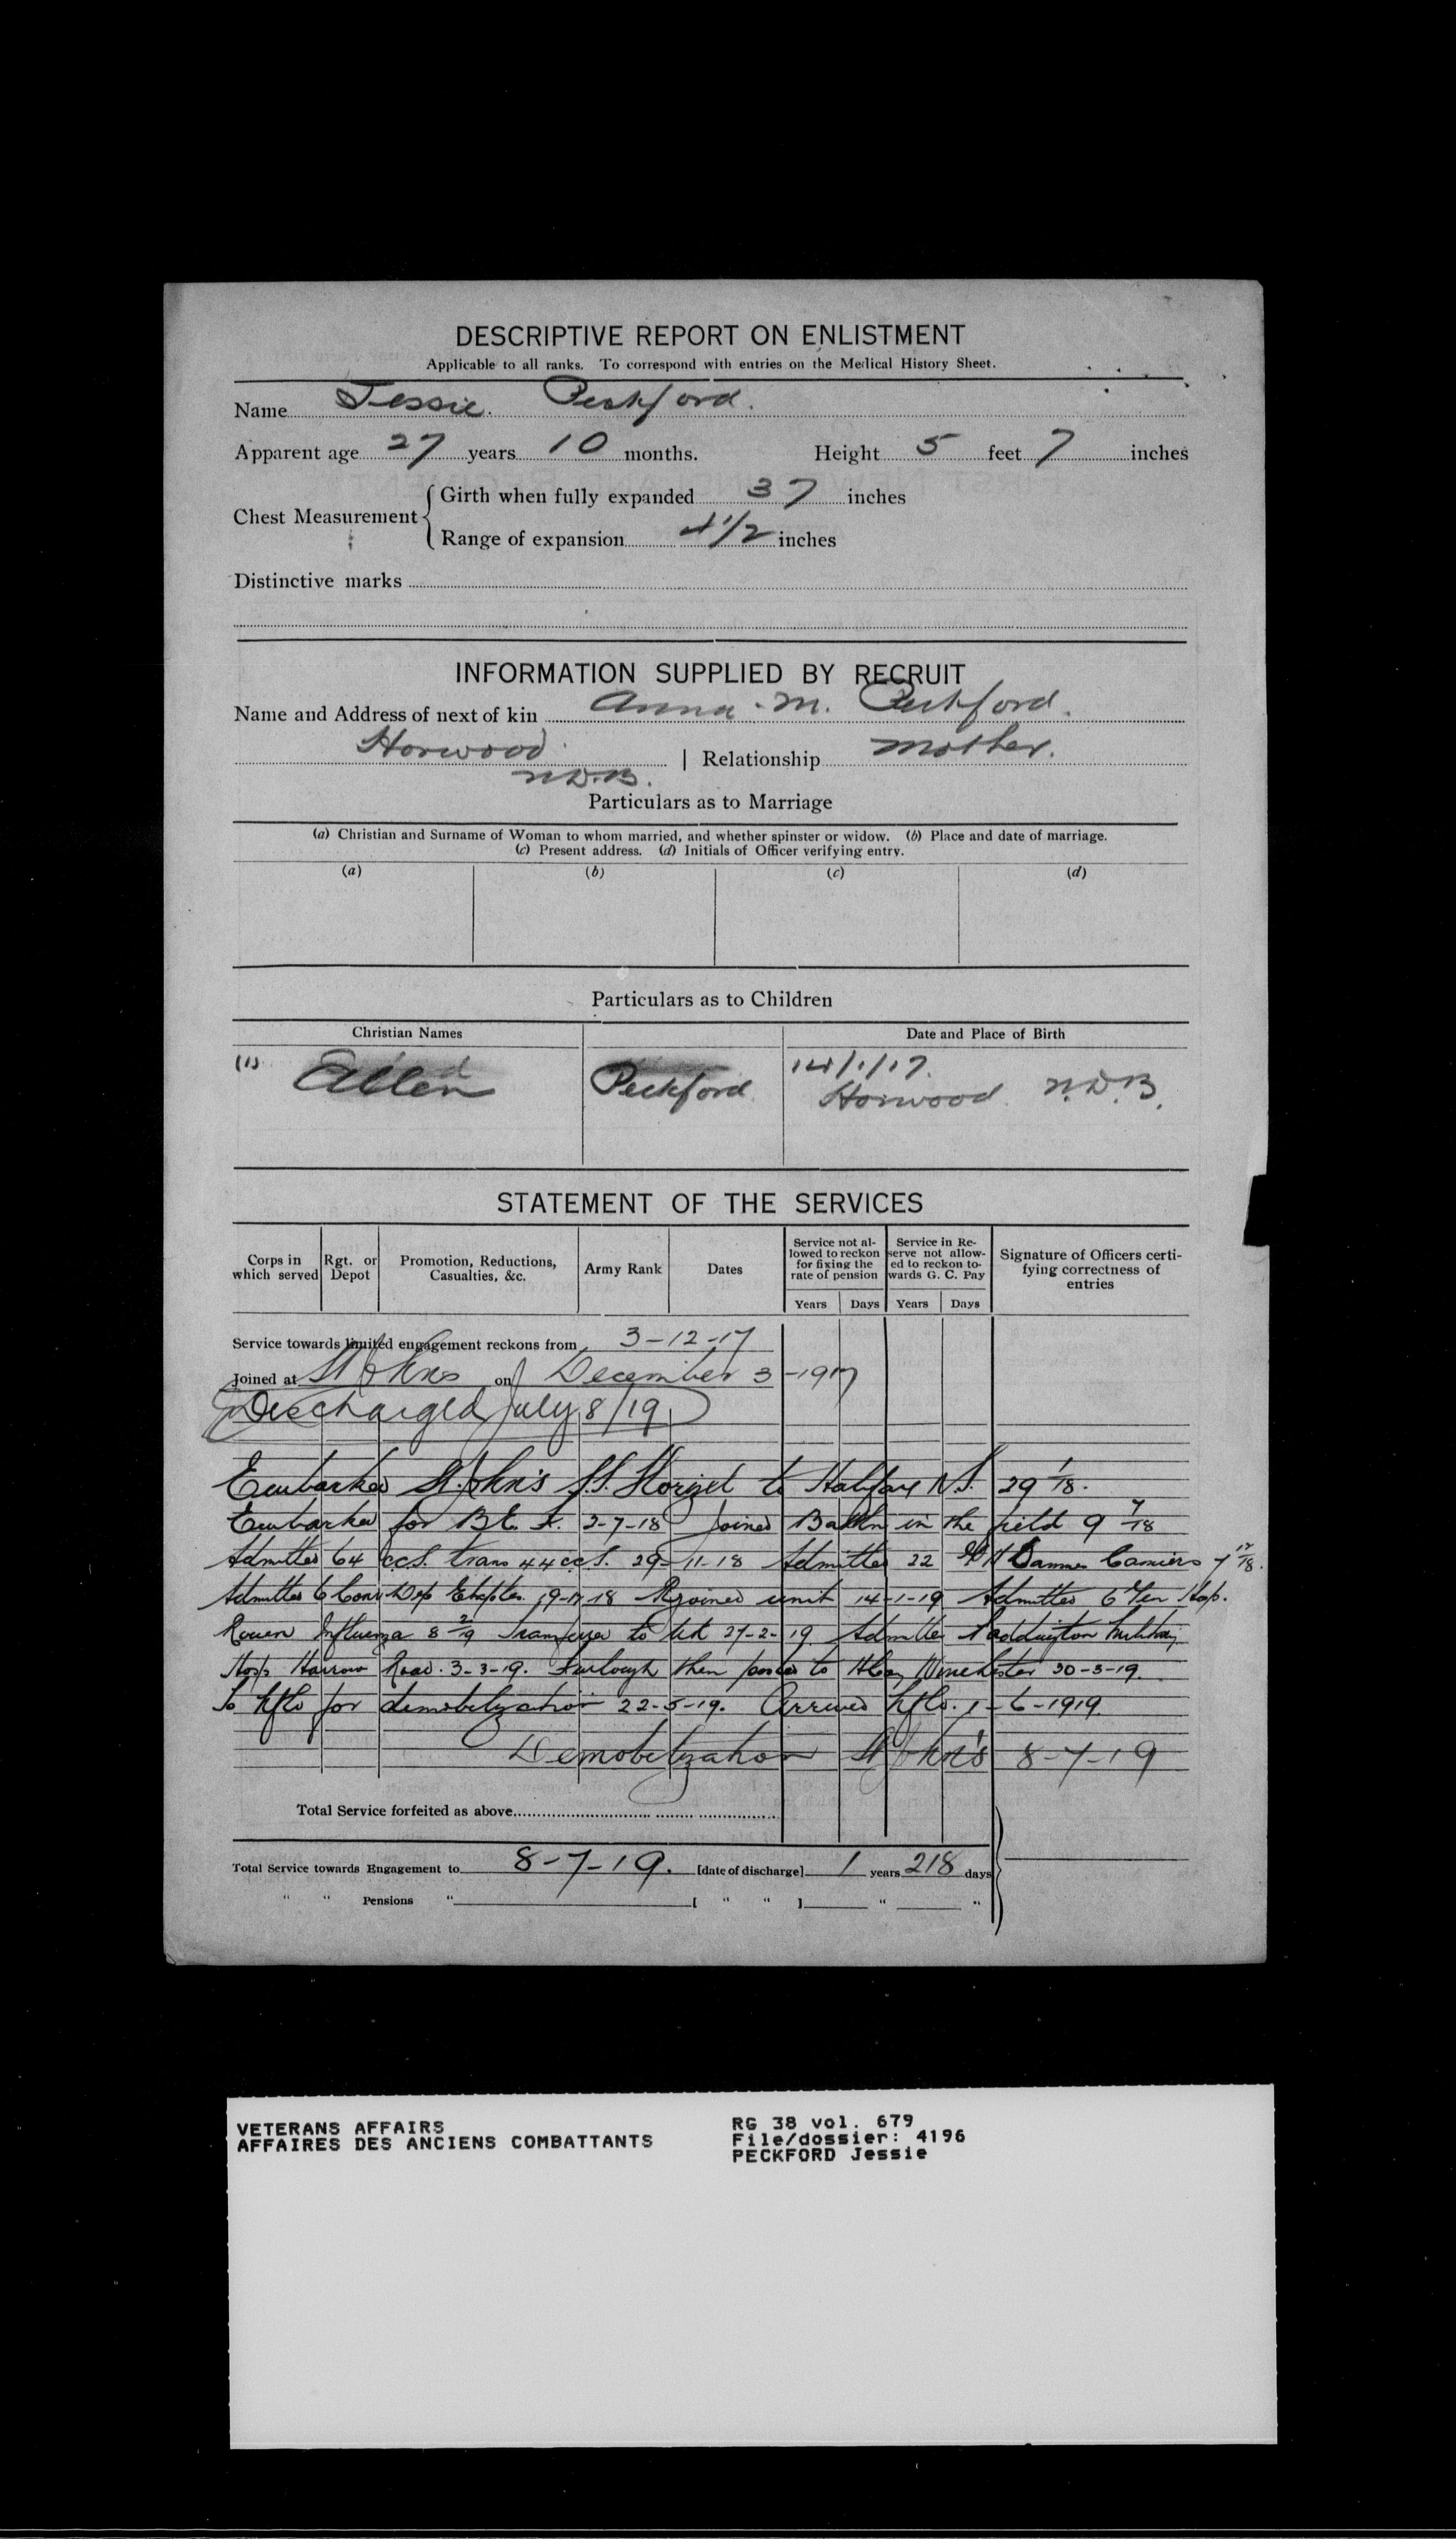 DESCRIPTIVE REPORT ON ENLISTMENT
Applicable to all ranks. To correspond with entries on the Medical History Sheet.
Name Jessie. Peckford.
Apparent age 27 years 10 months. Height 5 feet 7 inches
Chest Measurement { Girth when fully expanded 37 inches
Range of expansion 4 1/2 inches
Distinctive marks
INFORMATION SUPPLIED BY RECRUIT
Name and Address of next of kin Anna. M. Peckford.
Horwood. | Relationship mother.
N.D.B.
Particulars as to Marriage
(a) Christian and Surname of Woman to whom married, and whether spinster or widow. (b) Place and date of marriage.
(c) Present address. (d) Initials of Officer verifying entry.
(a) (b) (c) (d)
Particulars as to Children
Christian Names Date and Place of Birth
(1) Allen Peckford 14/1/17.
Horwood N.D.B.
STATEMENT OF THE SERVICES
Corps in which served Rgt. or Depot Promotion, Reductions, Casualties, &c. Army Rank Dates Service not allowed to reckon for fixing the rate of pension Service in Reserve not allowed to reckon towards G. C. Pay Signature of Officers certifying correctness of entries
Years Days Years Days
Service towards limited engagement reckons from 3-12-17
Joined at St Johns on December 3 - 1917
Discharged July 8/19
Embarked St. John's S.S. Florizel to Halifax N.S. 29 1/18.
Embarked for B.E.F. 2-7-18 Joined Battln in the field 9 7/18
Admitted 64 CCS. trans 44 CCS. 29-11-18 Admitted 22 Camiers 7 12/18.
Admitted 6 Conv Dep Etaples 19-12-18 Rejoined unit 14-1-19 Admitted 6 Gen Hosp.
Rouen Influenza 8 2/19 Transferred to UK 27-2-19 Admitted Paddington Military
Hosp Harrow Road. 3-3-19. Furlough then posted to Winchester 30-3-19.
To Nfld for demobilization 22-5-19. Arrived Nfld. 1-6-1919.
Demobilization St John's 8-7-19
Total Service forfeited as above
Total Service towards Engagement to 8-7-19. [date of discharge] 1 years 218 days
" " Pensions " [ " " ] " "
VETERANS AFFAIRS
AFFAIRES DES ANCIENS COMBATTANTS
RG 38 vol. 679
File/dossier: 4196
PECKFORD Jessie